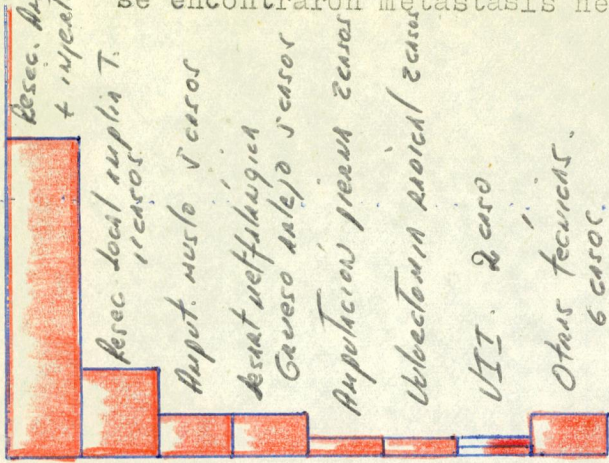 se encontraron metástasis he
Resec. Am
+ injert
Resec. Local amplia T.
11 casos.
Amput. muslo 5 casos
Desart metfalángica
Grueso artejo 5 casos
Amputación pierna 2 casos
Vulvectomia radical 2 casos
VII. 2 caso
Otras tecnicas.
6 casos.